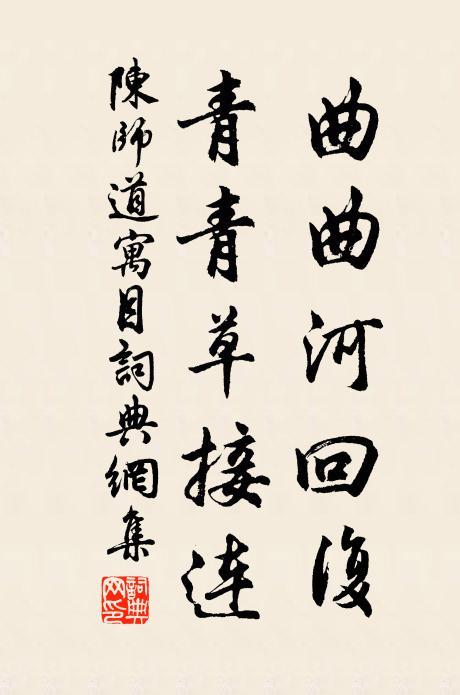 曲曲河回復
青青草接連
陳師道寓目詞典網集
詞典
网印